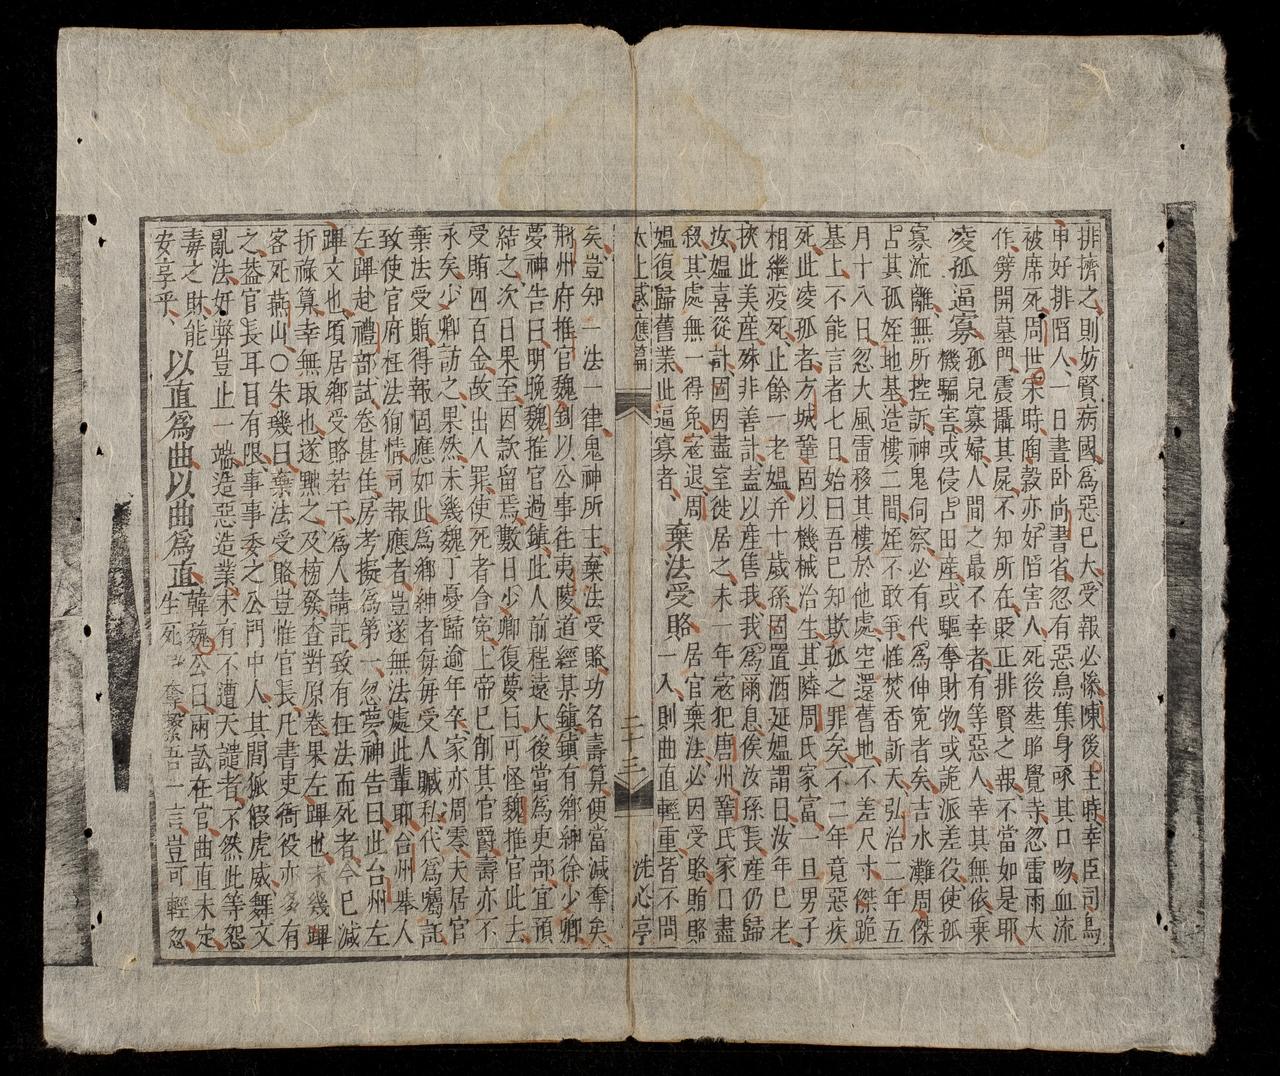 排擠之、則妨賢病國、爲惡已大、受報必慘、陳後主時、幸臣司馬
申好排陷人、一日晝卧尚書省、忽有惡鳥集身、啄其口吻、血流
被席死、問世〇宋時陶穀亦好陷害人、死後塟昭覺寺、忽雷雨大
作、劈開墓門、震攝其屍、不知所在、貶正排賢之報、不當如是耶、
凌孤逼寡 孤兒寡婦、人間之最不幸者、有等惡人、幸其無依、乘機騙害、或侵占田產、或驅奪財物、或詭派差役、使孤
寡流離、無所控訴、神鬼伺察、必有代爲伸寃者矣、吉水灘周傑
占其孤姪地基、造樓二間、姪不敢爭、惟焚香訴天、弘治二年五
月十八日、忽大風雷、移其樓於他處、空還舊地、不差尺寸、傑跪
基上、不能言者七日、始曰吾已知欺孤之罪矣、不二年竟惡疾
死、此凌孤者、方城鞏固、以機械治生、其隣周氏家富、一旦男子
相繼疫死、止餘一老媼、并十歲孫、固置酒延媼、謂曰、汝年已老
挾此美產、殊非善計、盍以產售我、我爲爾息、俟汝孫長、產仍歸
汝、媼喜從計、固因盡室徙居之、未一年、寇犯唐州、鞏氏家口盡
殺、其處無一得免、寇退、周
媼復歸舊業、此逼寡者、 棄法受賂 居官棄法、必因受賂、賄賂一入、則曲直輕重、皆不問
太上感應篇 二十三 洗心亭
矣、豈知一法一律、鬼神所主、棄法受賂、功名壽算、便當減奪矣、
荆州府推官魏釗、以公事往夷陵、道經某鎮、鎮有鄉紳徐少卿、
夢神告曰、明晚魏推官過鎮、此人前程遠大、後當爲吏部、宜預
結之、次日果至、因款留焉、數日、少卿復夢曰、可怪魏推官此去
受賄四百金、故出人罪、使死者含寃、上帝已削其官爵、壽亦不
永矣、少卿訪之、果然、未幾魏丁憂歸、逾年卒、家亦凋零、夫居官
棄法受賄、得報固應如此、爲鄉紳者、每每受人贓私、代爲囑託
致使官府枉法徇情、司報應者、豈遂無法處此輩耶、台州舉人
左蹕、赴禮部試、卷甚佳、房考擬爲第一、忽夢神告曰、此台州左
蹕文也、頃居鄉、受賂若干、爲人請託、致有枉法而死者、今已減
折祿算、幸無取也、遂黜之、及榜發、查對原卷、果左蹕也、未幾蹕
客死燕山〇朱璣曰、棄法受賂、豈惟官長、凡書吏衙役、亦多有
之、蓋官長耳目有限、事事委之公門中人、其間狐假虎威、舞文
亂法、奸弊豈止一端、造惡造業、未有不遭天譴者、不然此等怨
毒之財、能
安享乎、 以直爲曲以曲爲直 韓魏公曰、兩訟在官、曲直未定、生死 奪繫吾一言、豈可輕忽、